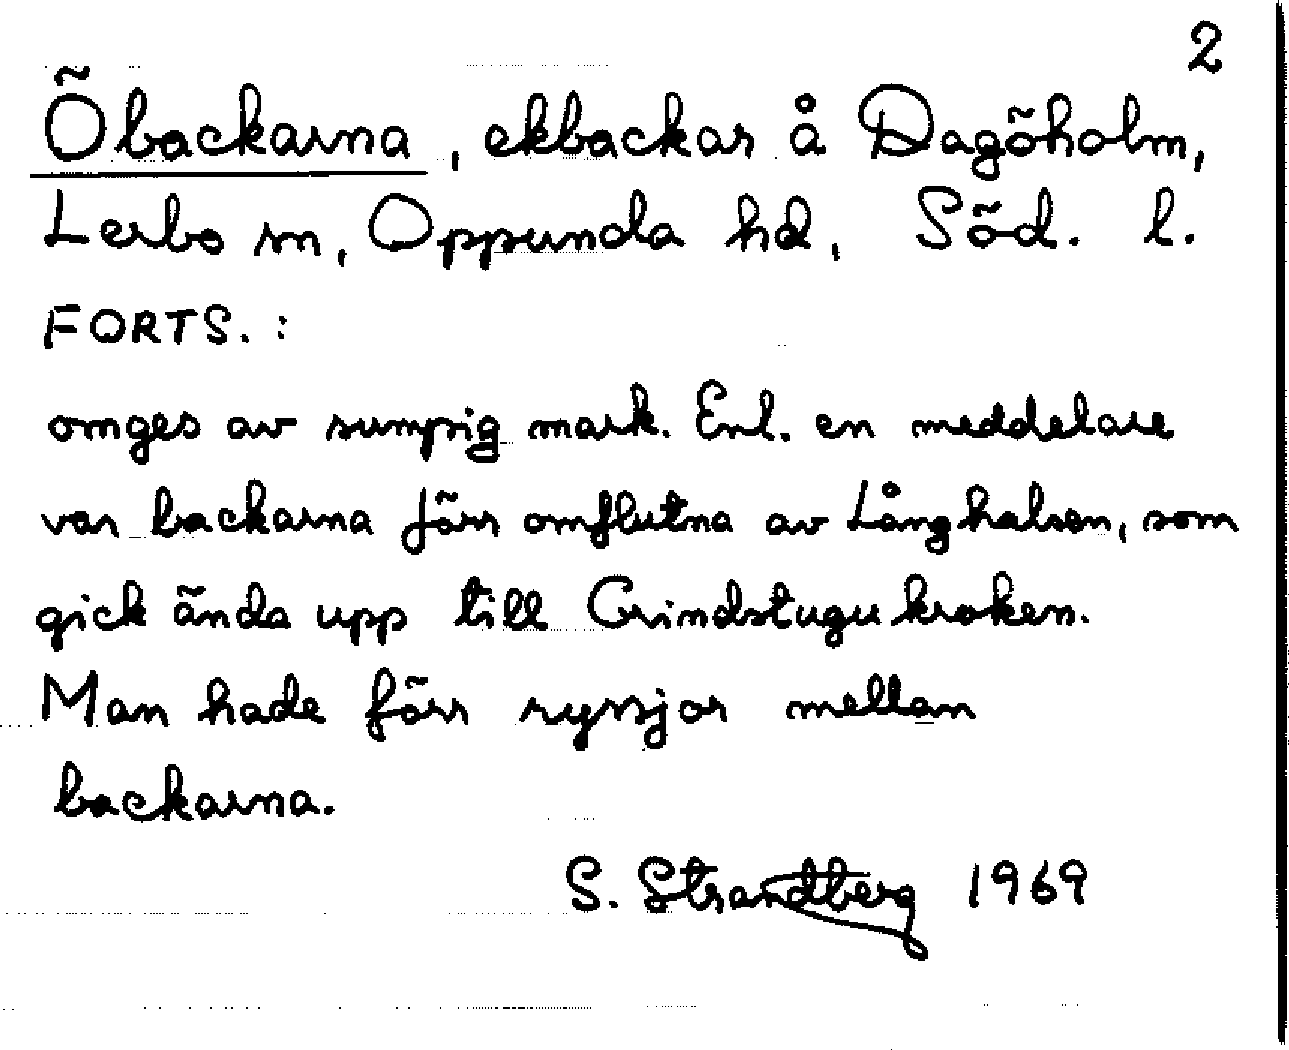 2
Öbackarna, ekbackar å Dagöholm,
Lerbo sn, Oppunda hd, Söd. l.
FORTS.:
omges av sumpig mark. Enl. en meddelare
var backarna förr omflutna av Långhalsen, som
gick ända upp till Grindstugukroken.
Man hade förr ryssjor mellan
backarna.
S. Strandberg 1969